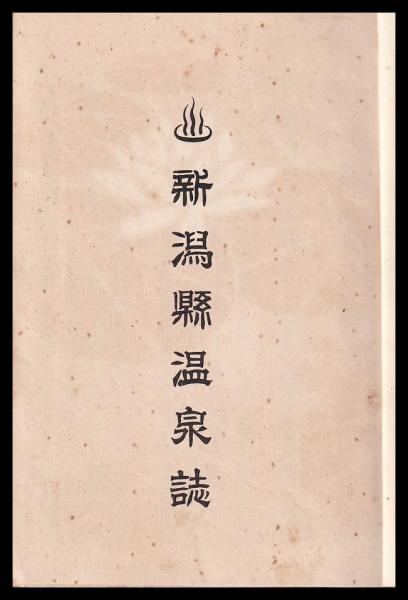 ♨新潟縣温泉誌